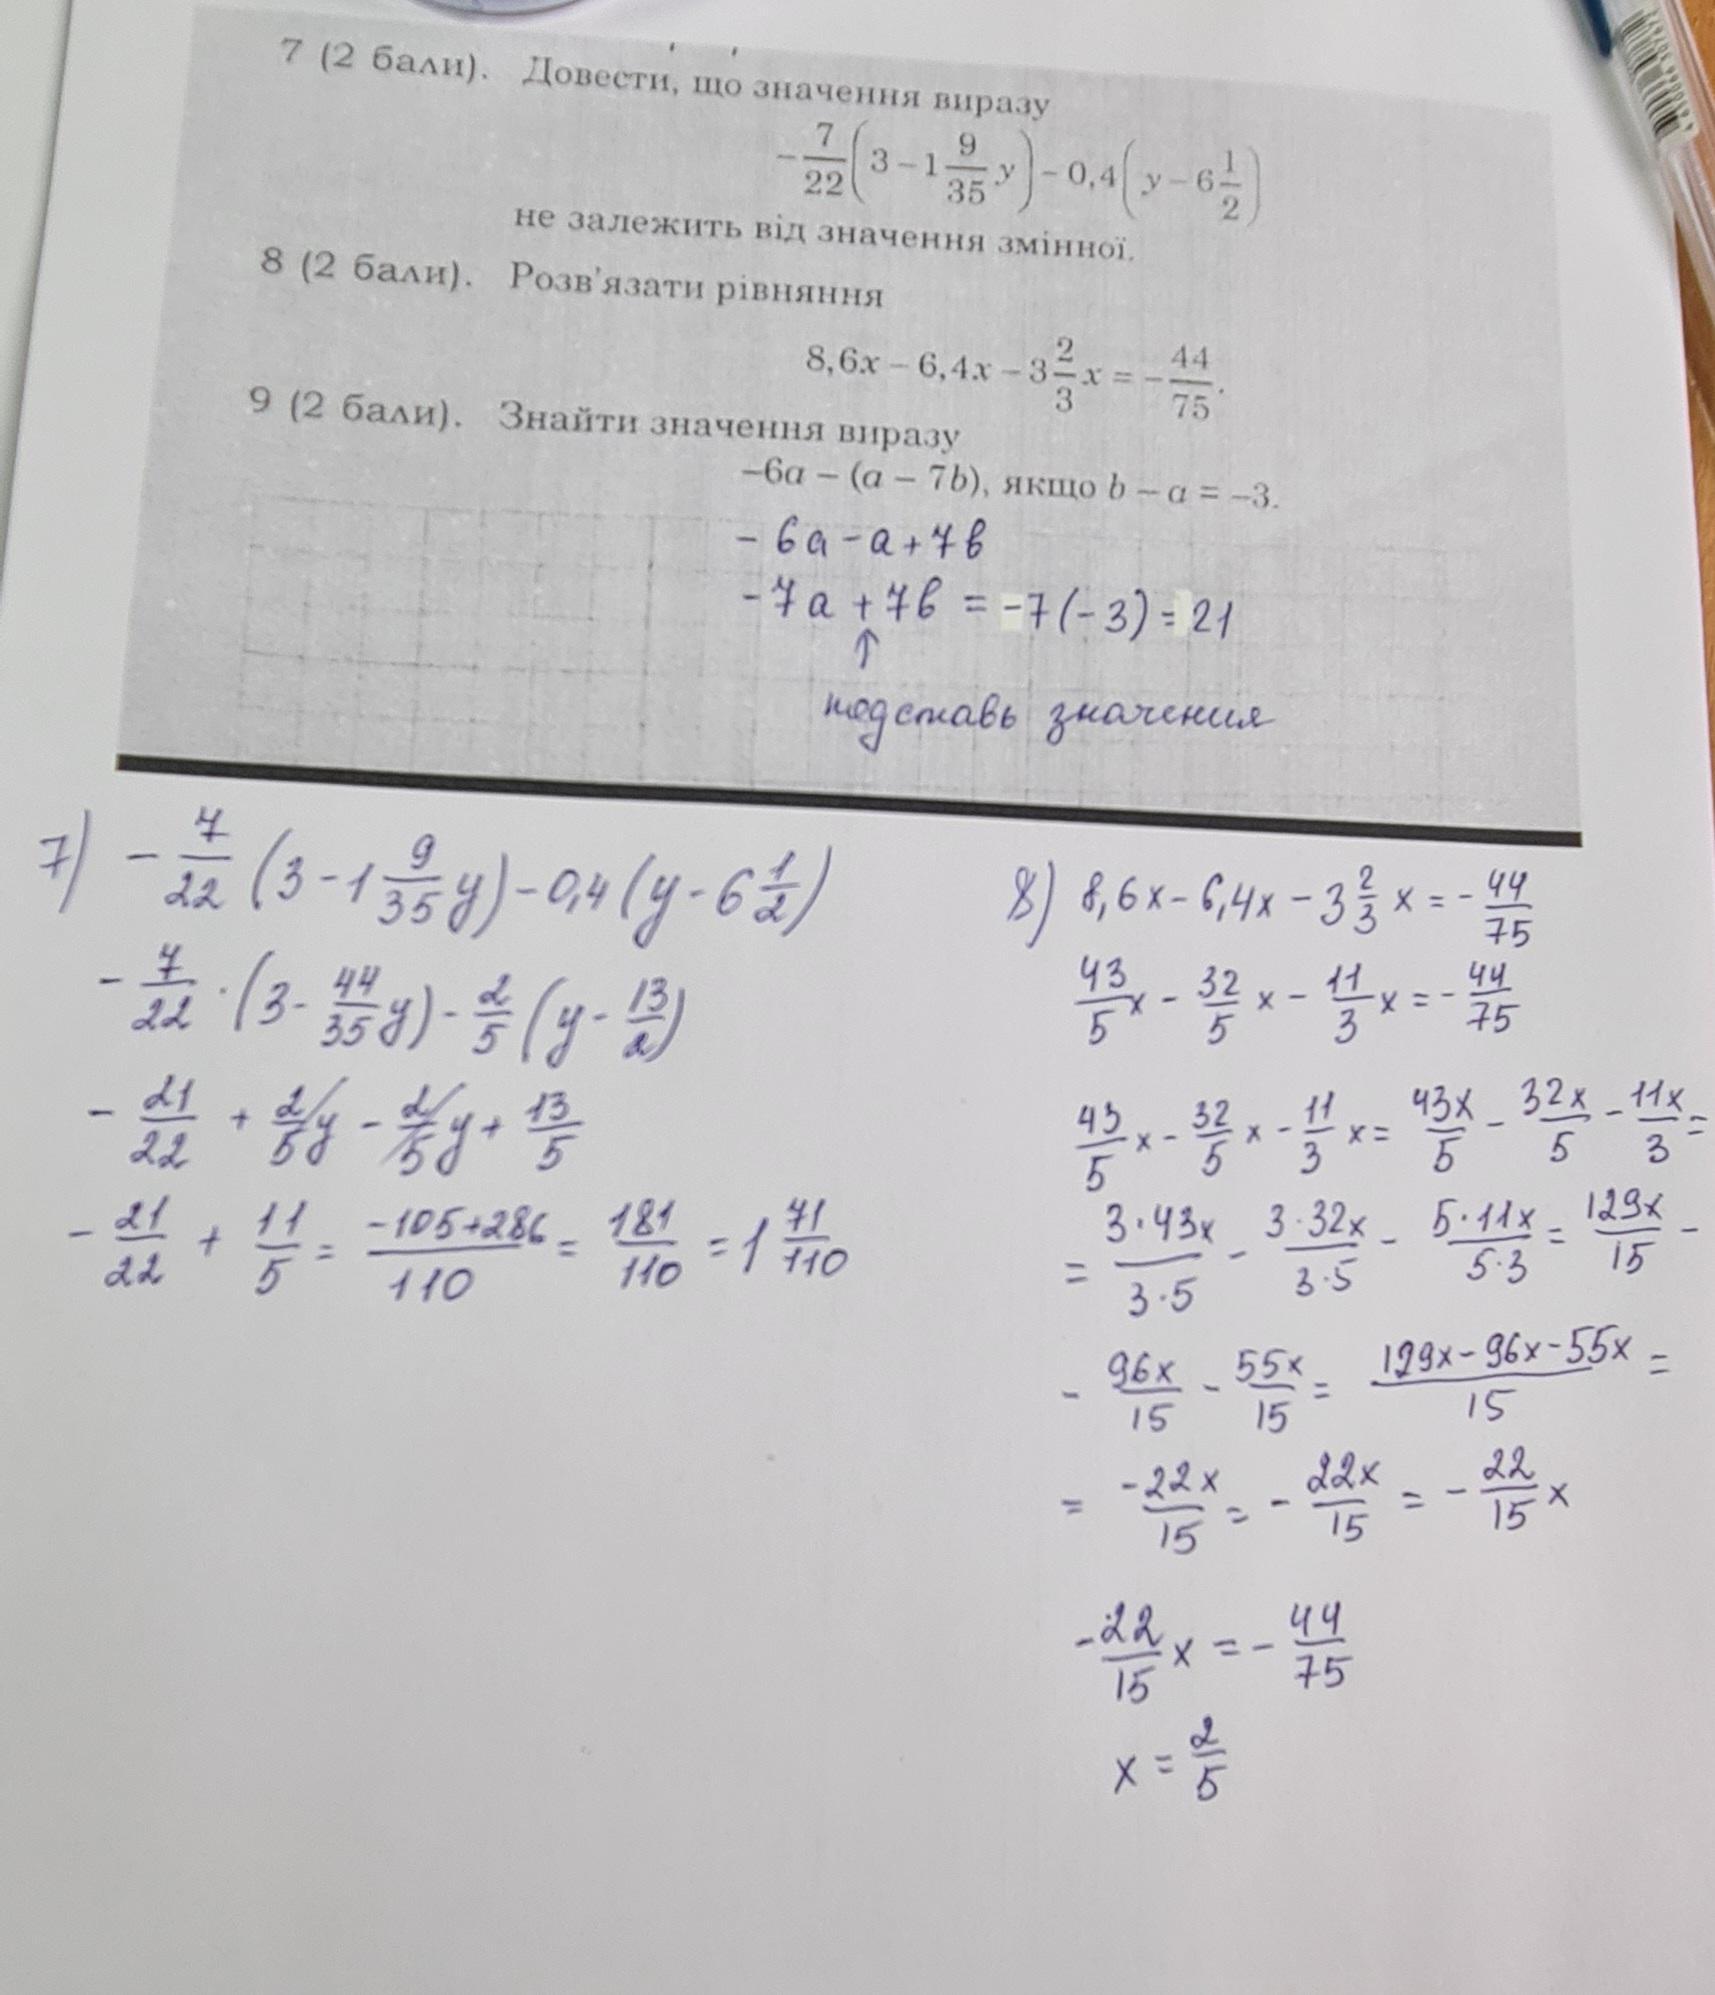 7 (2 бали). Довести, що значення виразу
-7/22(3 - 1 9/35 y) - 0,4(y - 6 1/2)
не залежить від значення змінної.
8 (2 бали). Розв'язати рівняння
8,6x - 6,4x - 3 2/3 x = -44/75.
9 (2 бали). Знайти значення виразу
-6a - (a - 7b), якщо b - a = -3.
- 6a - a + 7b
- 7a + 7b = -7(-3) = 21
↑
подставь значения
7) - 7/22 (3 - 1 9/35 y) - 0,4 (y - 6 1/2)
- 7/22 · (3 - 44/35 y) - 2/5 (y - 13/2)
- 21/22 + 2/5 y - 2/5 y + 13/5
- 21/22 + 11/5 = -105+286/110 = 181/110 = 1 71/110
8) 8,6x - 6,4x - 3 2/3 x = - 44/75
43/5 x - 32/5 x - 11/3 x = - 44/75
43/5 x - 32/5 x - 11/3 x = 43x/5 - 32x/5 - 11x/3 =
= 3·43x/3·5 - 3·32x/3·5 - 5·11x/5·3 = 129x/15 -
- 96x/15 - 55x/15 = 129x-96x-55x/15 =
= -22x/15 = - 22x/15 = - 22/15 x
- 22/15 x = - 44/75
x = 2/5